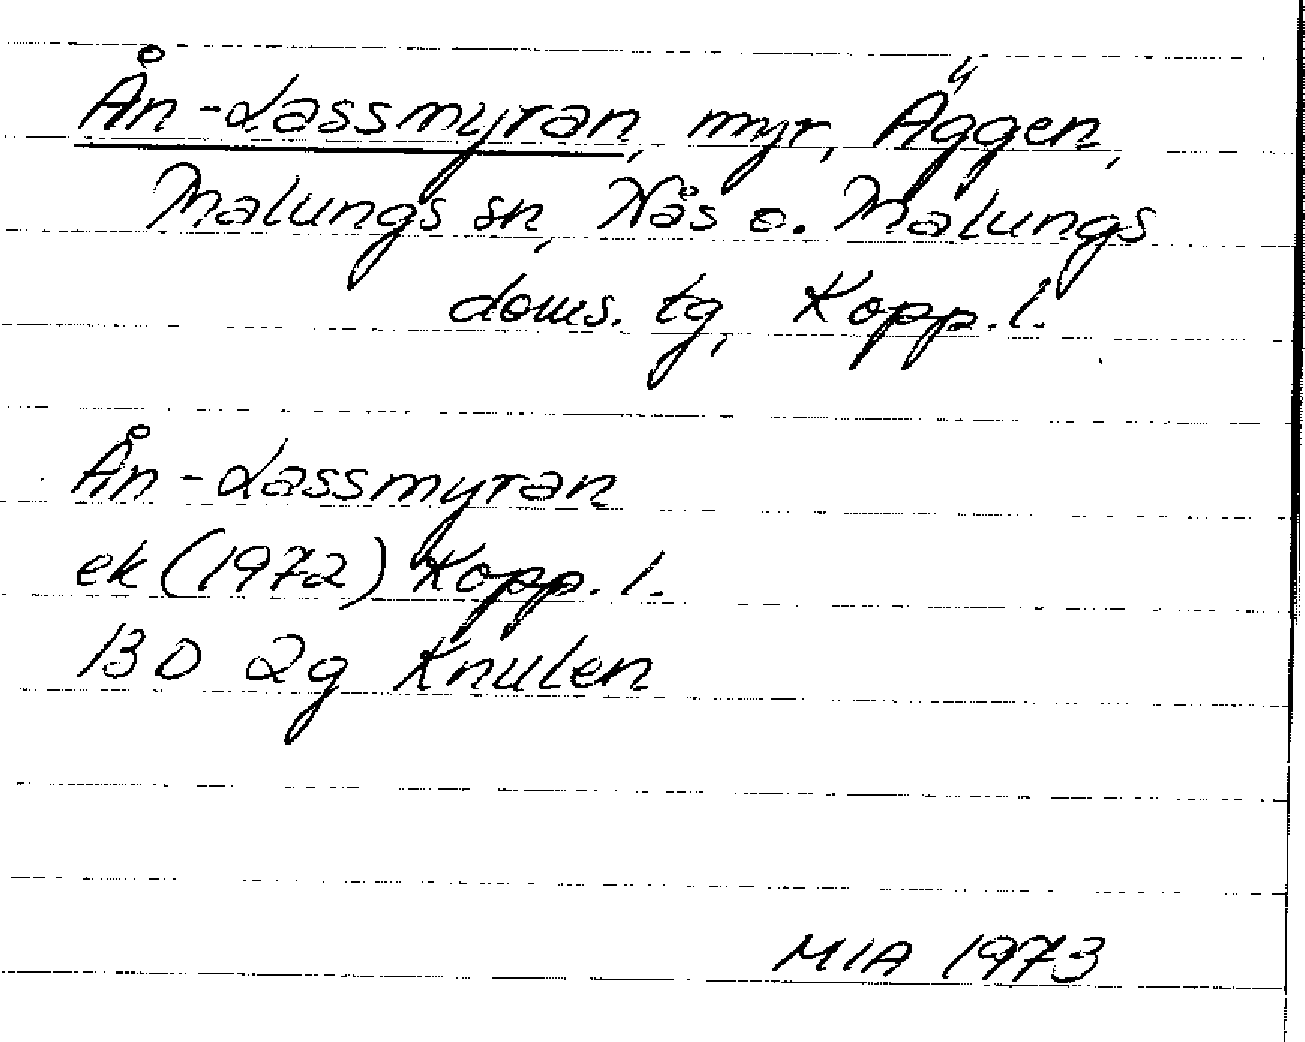 Ån-Lassmyran, myr, Äggen,
Malungs sn, Nås o. Malungs
doms. tg, Kopp. l.
Ån-Lassmyran
ek (1972) Kopp. l.
13D 2g Knulen
MIA 1973